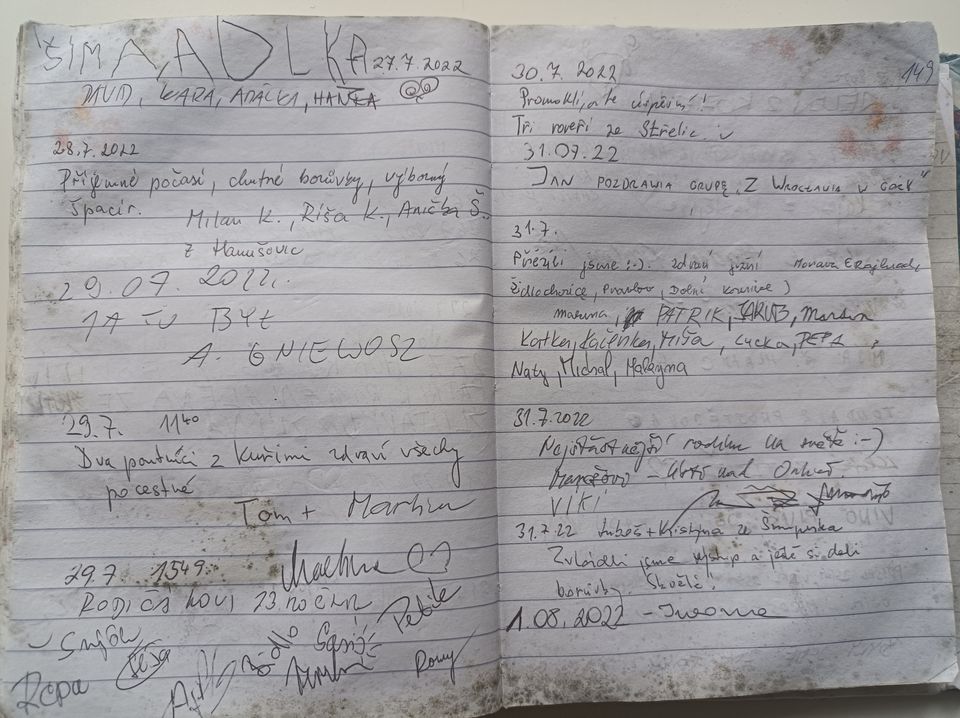 ŠIMA, ADLKA 27.7.2022
DAVID, KÁRA, ADÁLKA, HANKA
28.7.2022
Příjemné počasí, chutné borůvky, výborný
špacír.
Milan K., Ríša K., Anička Š.
z Hanušovic
29.07.2022.
JA TU BYŁ
A. GNIEWOSZ
29.7. 11 40
Dva poutníci z Kuřimi zdraví všechny
pocestné
Tom + Martin
29.7 15 49
Repa
Romy
149
30.7.2022
Promoklí, ale úspěšní!
Tři roveři ze Střelic
31.07.22
JAN POZDRAWIA GRUPĘ „Z WROCŁAWIA W GÓRY"
31.7.
Přežili jsme :-). zdraví jižní Morava (Rajhrad,
Židlochovice, Pravlov, Dolní Kounice)
PATRIK, JAKUB, Martin
Katka, Kačenka, Míša, Lucka, PEPA,
Naty, Michal, Matayna
31.7.2022
Nejšťastnější rodina na světě :-)
VIKI
31.7.22 Luboš + Kristýna ze Šumperka
Zvládli jsme výstup a ještě si dali
borůvky. Skvělé!
1.08.2022 - Iwona